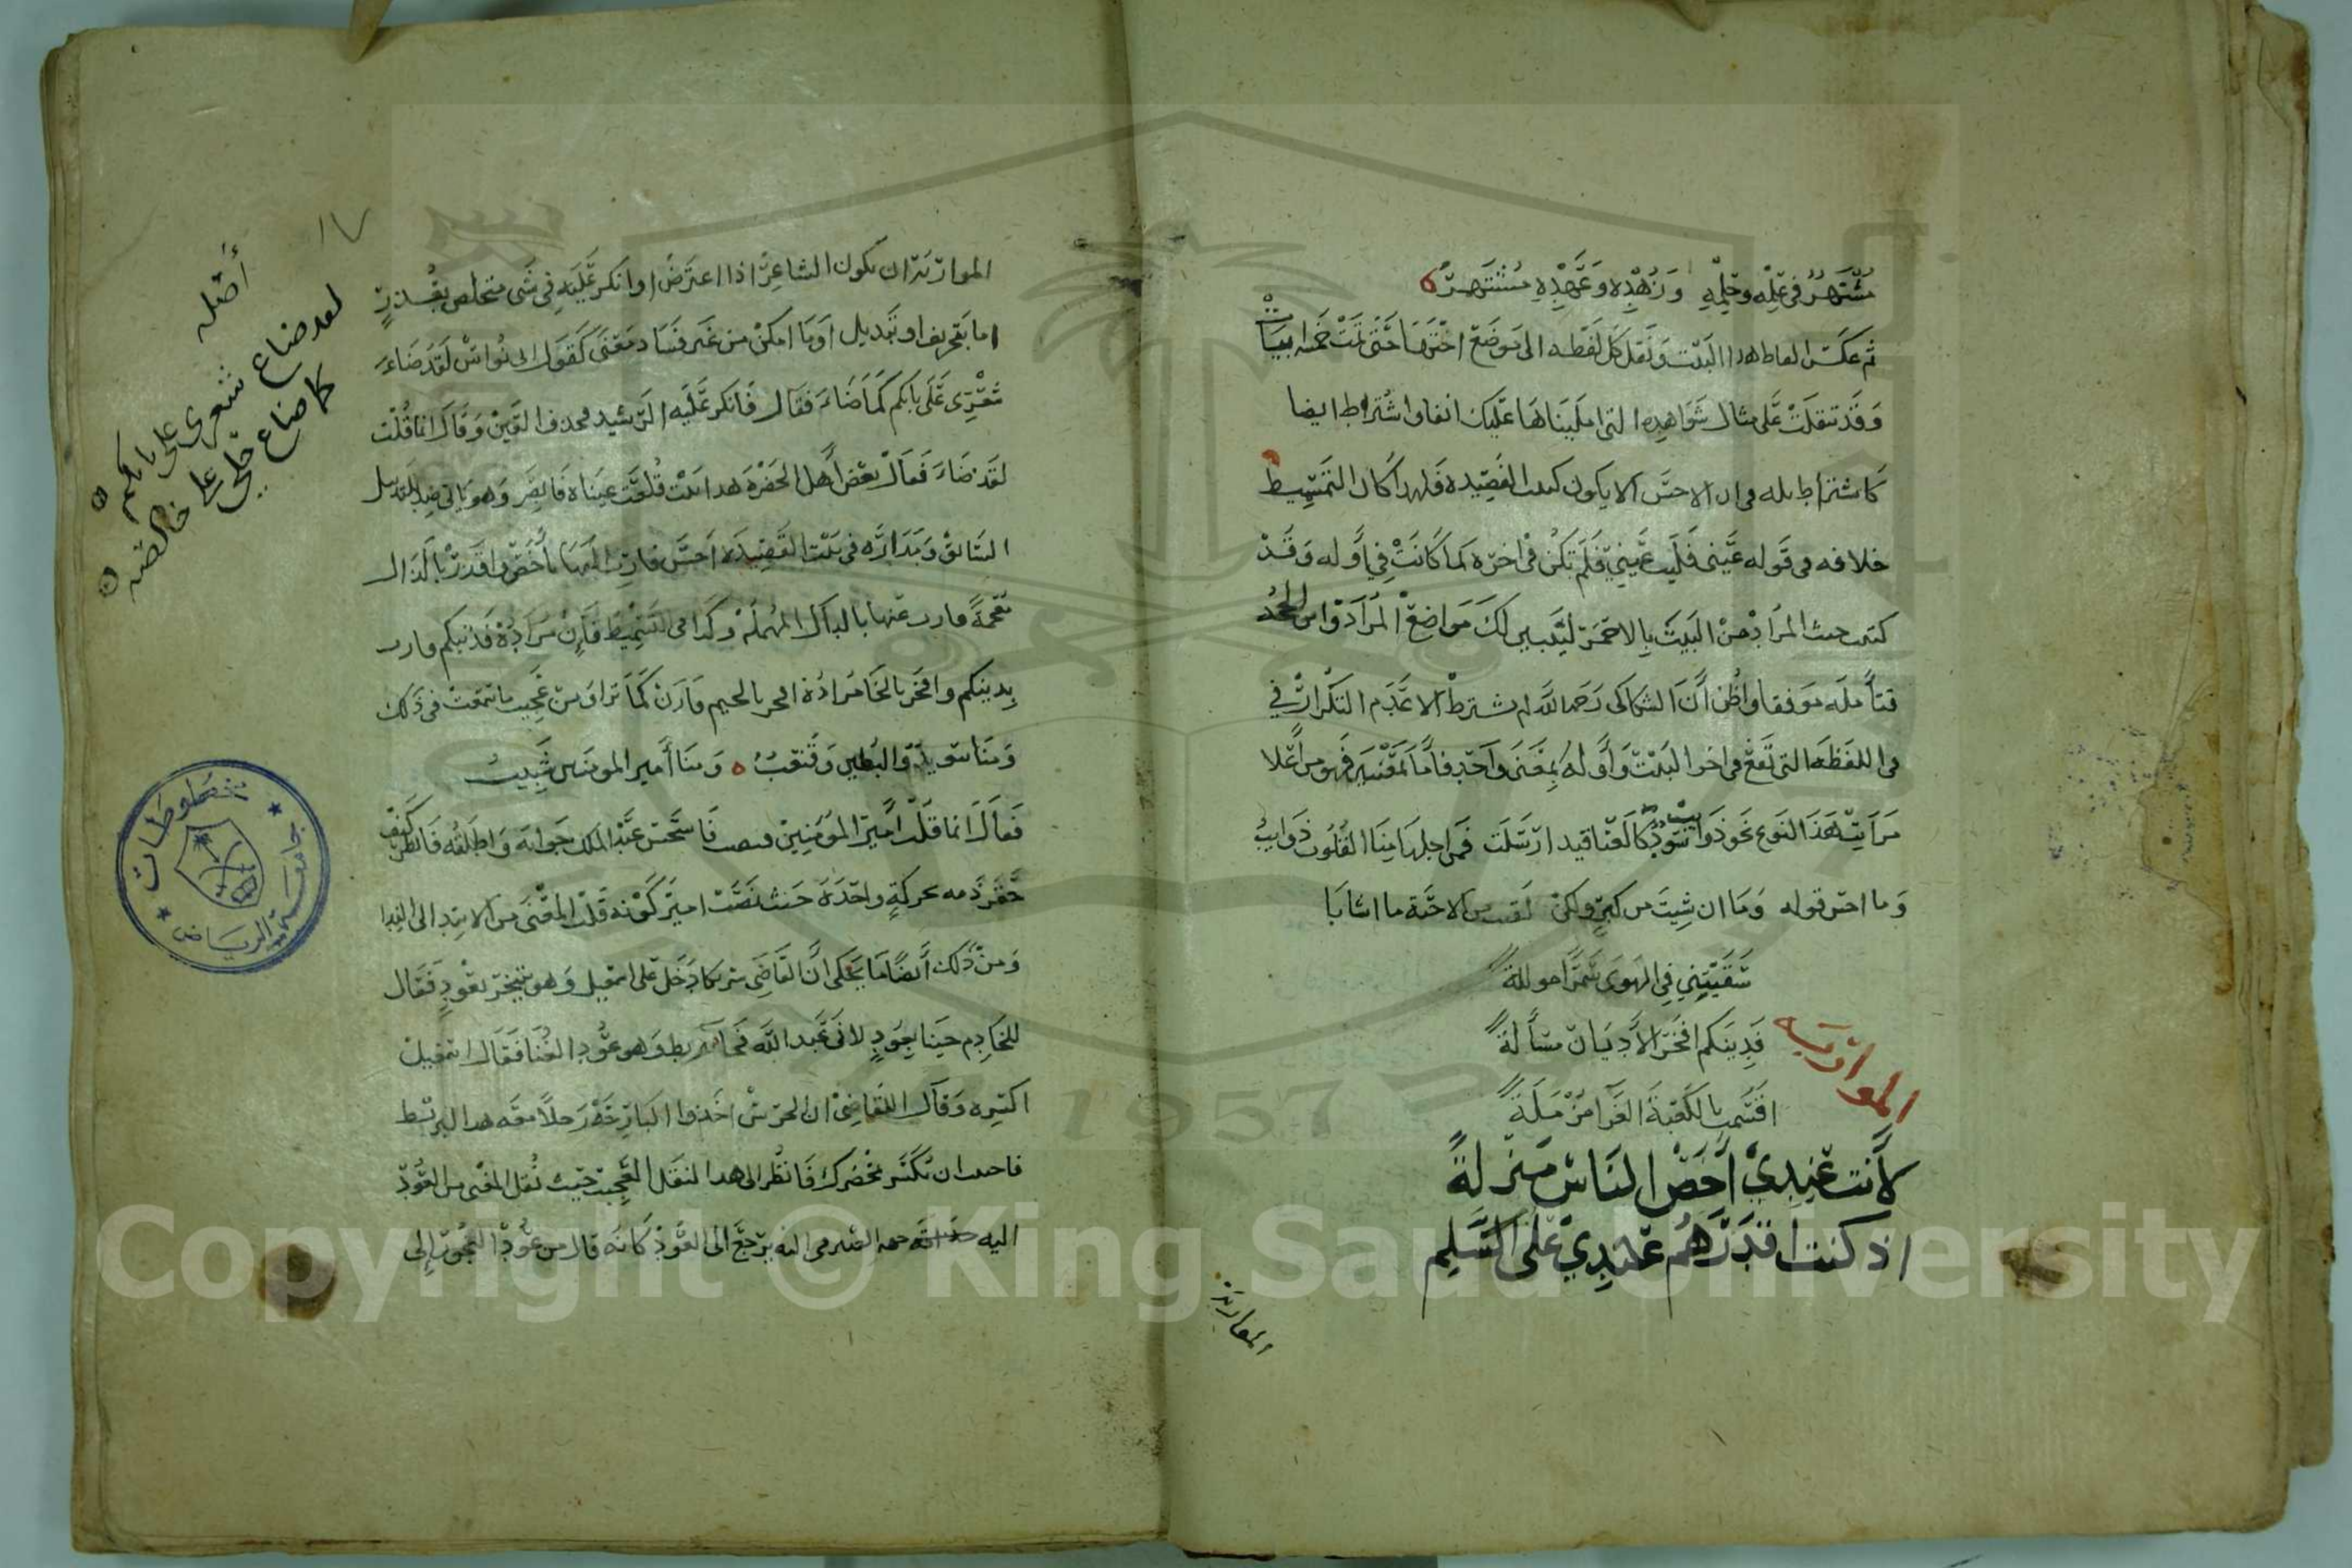 مُشْتَهِرٌ في عِلْمِه وحِلْمِهِ وَزُهْدِه وَعَهْدِهِ مُشْتَهِرٌ
ثم عكس الفاظ هذا البيت ونقل كل لفظه الى موضع اختها حتى تمت خمسه ابيات
وقد تنقلت على مثال شواهده التي امليناها عليك انفا واشتراط ايضا
كاشتراط له في ان الاحسن الا يكون كبيت القصيده فلهذا كان التسميط
خلافه في قوله عيني فليت عيني فلم تكن في اخره كما كانت في اوله وقد
كتبت حيث المراد من البيت بالاحمر ليتبين لك مواضع المراد واس الجد
فتأمله موفقا واظن أن السكاكي رحمه الله لم يشترط الا عدم التكرار في
في اللفظه التي تقع في اخر البيت وأوله بمعنى واحد فاما بمعنيين فهو من أعلا
مراتب هذا النوع نحو ذوايب سود كالعناقيد ارسلت فمن اجلها منا القلوب ذوايب
وما احسن قوله وما ان شبت من كبر ولكن لقيت من الاحبة ما اشابا
سقيتني في الهوى سما
فدينكم افخر الأديان مسألة
المواربه
اقسم بالكعبة الغرا من مله
لأنت عندي أخص الناس منزلةً
اذ كنت اقدرهم عندي على السلم
المواربة
المواربة ان يكون الشاعر اذا اعترض او انكر عليه في شي متخلص بقدر
اما بتحريف او تبديل او ما امكن من غير فساد معنى كقول ابي نواس لقد ضاء
شعري على بابكم كما ضاء فقال فانكر عليه الرشيد فحذف العين وقال انما قلت
لقد ضاء فقال بعض أهل الحضره هذا بيت قلعت عيناه فابصر وهو باقي
السابق وبداره في بيت القصيده احسن وارب بأخص واقدر بالذال
معجمة وارب عنها بالدال المهملة وكذا في التسميط فان مراده فدنيكم وارب
بدينكم وافخر بالخا مراده بالجيم وارن كما تراه من عجيب ما سمعت في ذلك
ومنا سويد والبطين وقعنب ه ومنا أمير المومنين شبيب
فقال انما قلت أميرَ المومنين فاستحسن عبد الملك جوابه واطلقه فانظر كيف
حقن دمه بحركةٍ واحدة حيث نصبت امير كونه قلب المعنى من الابتدا الى الندا
ومن ذلك أيضًا ما يحكى أن القاضي شريكا دخل على المهدي وهو يتبخر بعود فقال
للخادم حينا بعود لابي عبد الله فجاه بربط وهو عود الغنا فقال
اكسره وقال للقاضي ان الحرس اخذوا البارحة رجلا معه هذا البربط
فاحببت ان تكسر بحضرك فانظر الى هذا النقل العجيب حيث نقل المعنى من العود
اليه يرجع الى العود كانه قال من عود البخور إلى
١٧
أصله
لقد ضاع شعري على بابكم
كما ضاع حلي على خالصه
مخطوطات
جامعة الرياض
1957
Copyright © King Saud University